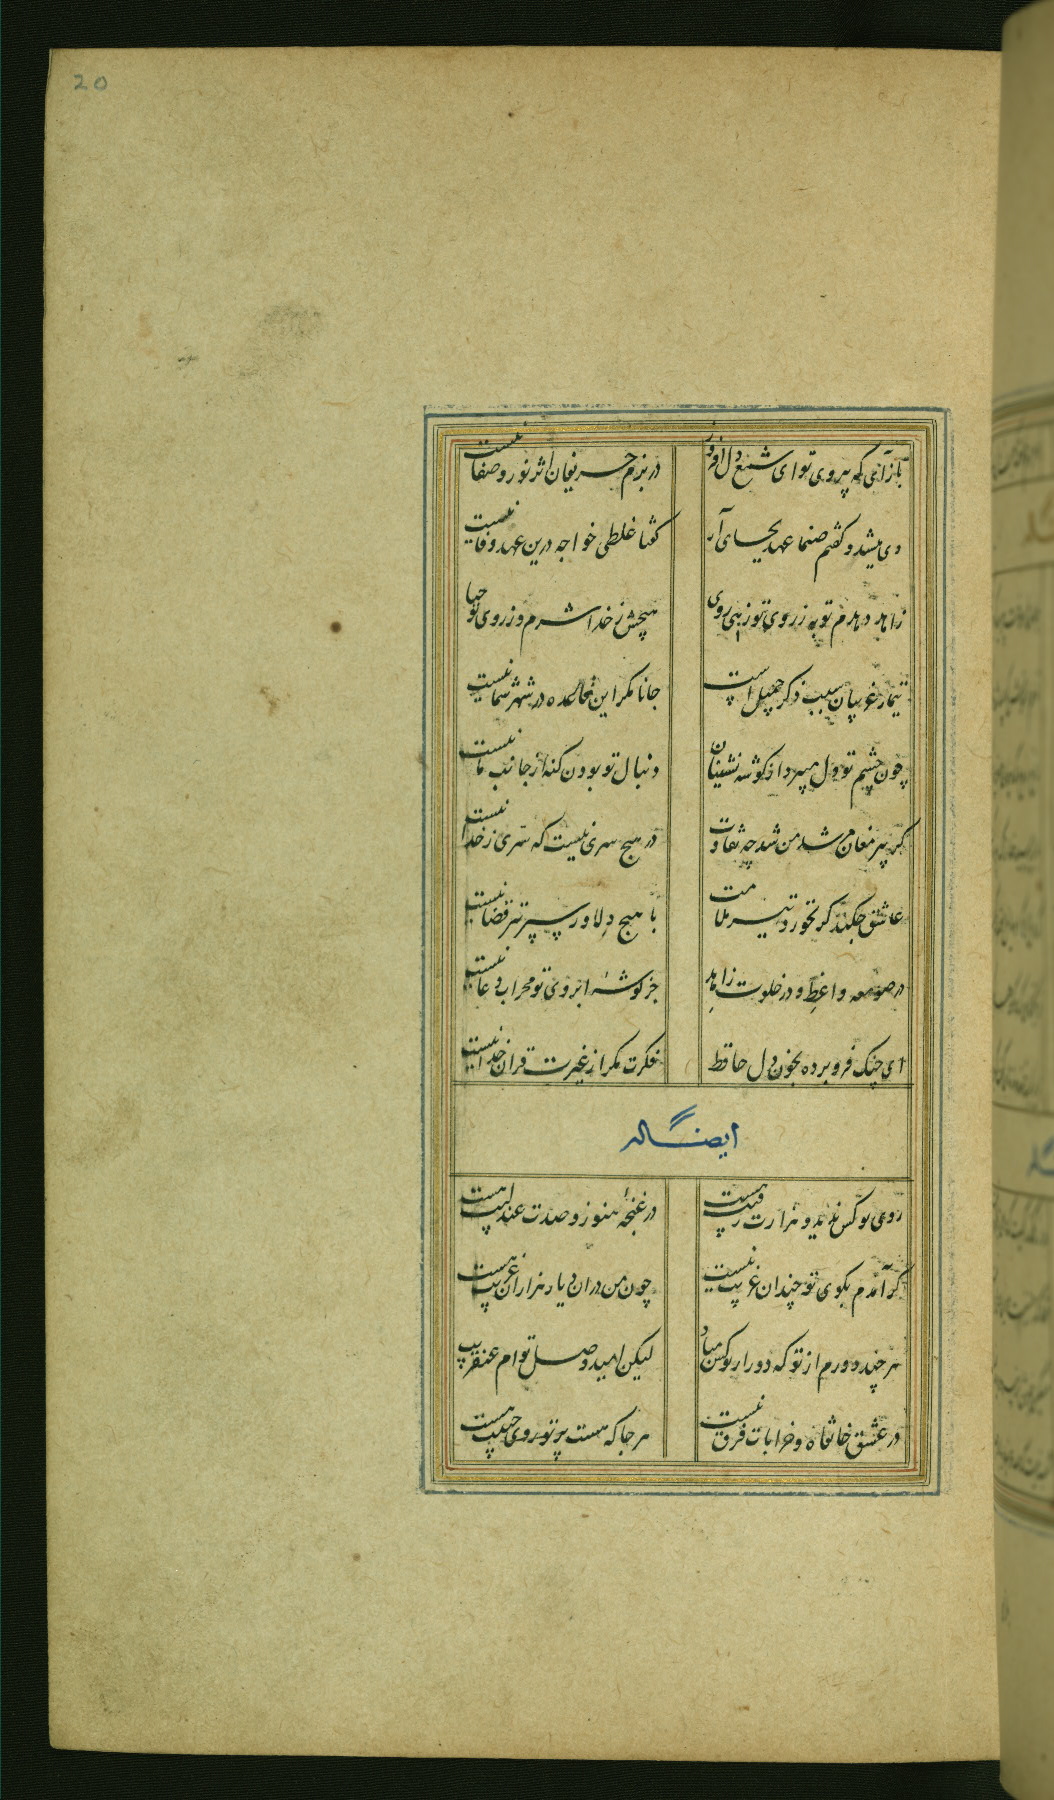 20
بازآی که بی روی تو ای شمع دل افروز
در بزم حریفان اثر نور و صفا نیست
دی میشد و گفتم صنما عهد بجای آر
گفتا غلطی خواجه درین عهد وفا نیست
زاهد دهدم توبه ز روی تو زهی روی
هیچش ز خدا شرم و ز روی تو حیا
تیمار غریبان سبب ذکر جمیل است
جانا مگر این قاعده در شهر شما نیست
چون چشم تو دل میبرد از گوشه نشینان
دنبال تو بودن گنه از جانب ما نیست
گر پیر مغان مرشد من شد چه تفاوت
در هیچ سری نیست که سری ز خدا نیست
عاشق چکند گر نخورد تیر ملامت
با هیچ دلاور سپر تیر قضا نیست
در صومعه واعظ و در خلوت زاهد
جز گوشه ابروی تو محراب دعا نیست
ای چنگ فرو برده بخون دل حافظ
فکرت مگر از غیرت قران خدا نیست
ایضاله
روی تو کس ندید و هزارت رقیب هست
در غنچه هنوز و صدت عندلیب هست
گر آمدم بکوی تو چندان غریب نیست
چون من دران دیار هزاران غریب هست
هر چند دورم از تو که دور از تو کس مباد
لیکن امید وصل توام عنقریب
در عشق خانقاه و خرابات فرق نیست
هر جا که هست پرتو روی حبیب هست